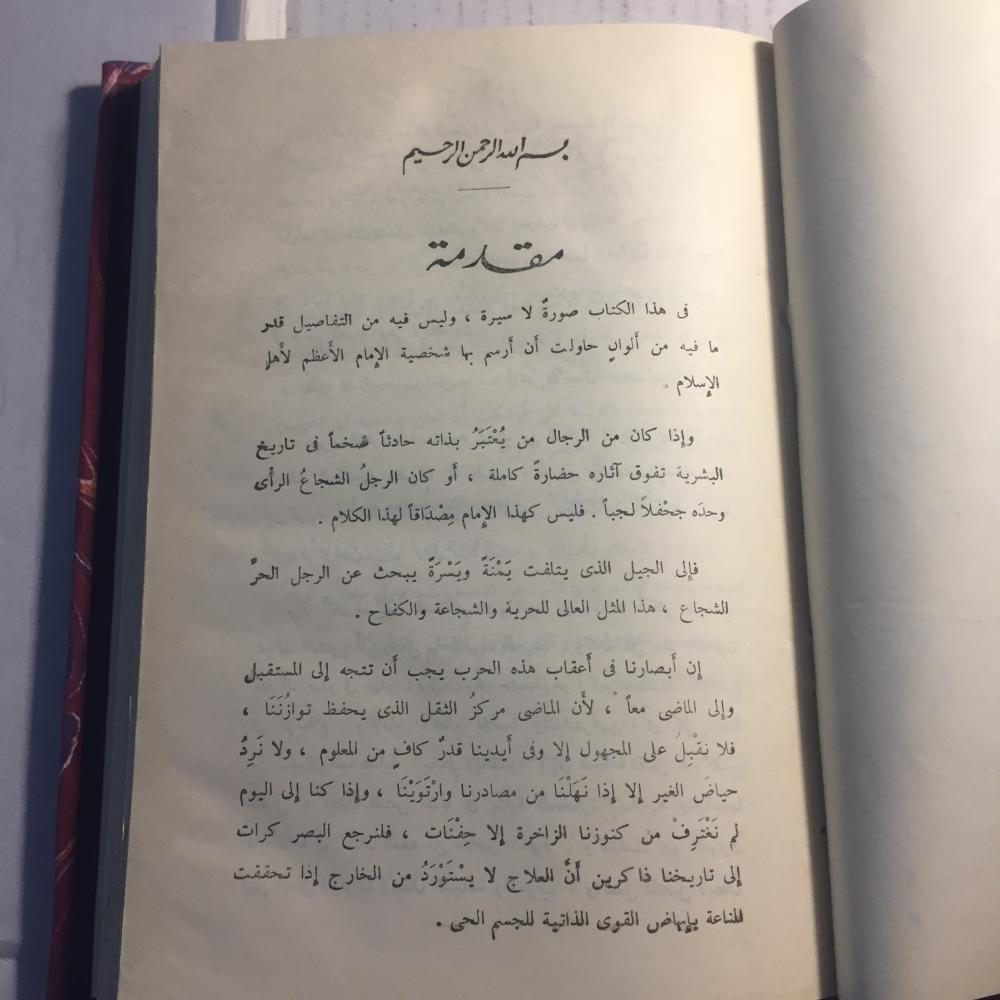 بسم الله الرحمن الرحيم
مقدمة
فى هذا الكتاب صورةٌ لا سيرة ، وليس فيه من التفاصيل قدر
ما فيه من ألوانٍ حاولت أن أرسم بها شخصية الإمام الأعظم لأهل
الإسلام .
وإذا كان من الرجال من يُعْتَبَرُ بذاته حادثاً ضخماً فى تاريخ
البشرية تفوق آثاره حضارةً كاملة ، أو كان الرجلُ الشجاعُ الرأى
وحدَه جحْفلاً لجباً . فليس كهذا الإمام مِصْدَاقاً لهذا الكلام .
فإلى الجيل الذى يتلفت يَمْنَةً ويَسْرَةً يبحث عن الرجل الحرِّ
الشجاع ، هذا المثل العالى للحرية والشجاعة والكفاح .
إن أبصارنا فى أعقاب هذه الحرب يجب أن تتجه إلى المستقبل
وإلى الماضى معاً ، لأن الماضى مركزُ الثقل الذى يحفظ توازُنَنَا ،
فلا نُقْبِلُ على المجهول إلا وفى أيدينا قدرٌ كافٍ من المعلوم ، ولا نَرِدُ
حياضَ الغير إلا إذا نَهَلْنَا من مصادرنا وارْتَوَيْنَا ، وإذا كنا إلى اليوم
لم نَغْتَرِفْ من كنوزنا الزاخرة إلا حِفْنَات ، فلنرجع البصر كرات
إلى تاريخنا ذاكرين أنَّ العلاج لا يسْتَوْرَدُ من الخارج إذا تحققت
المناعة بإنهاض القوى الذاتية للجسم الحى .